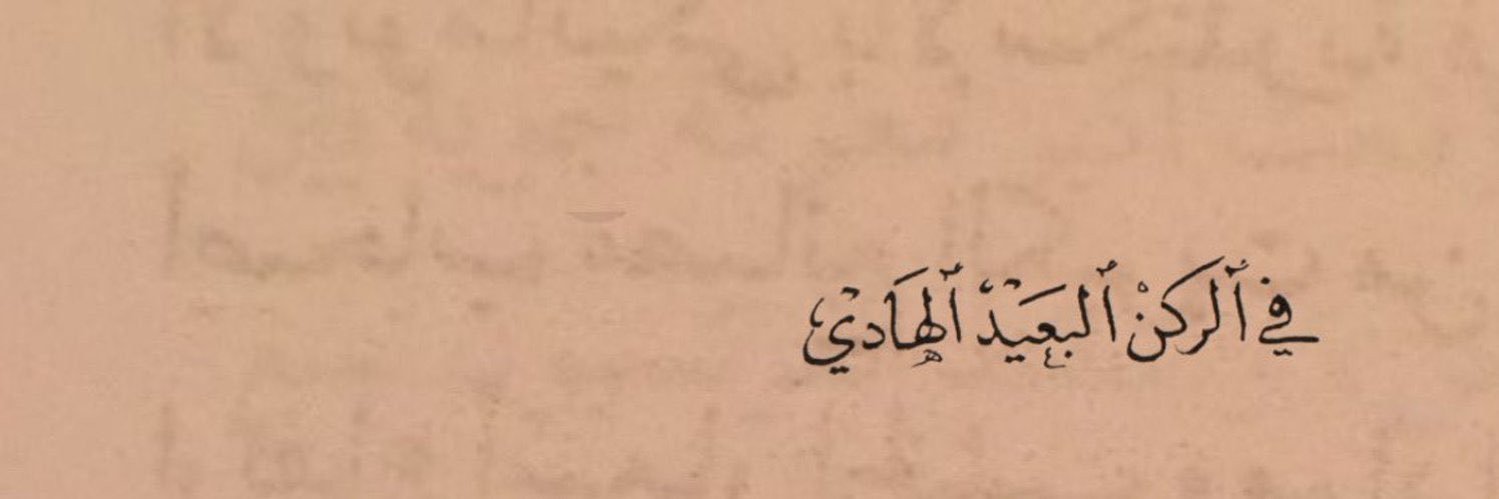 في ٱلركنْ ٱلبعيدْ ٱلهَاديْ